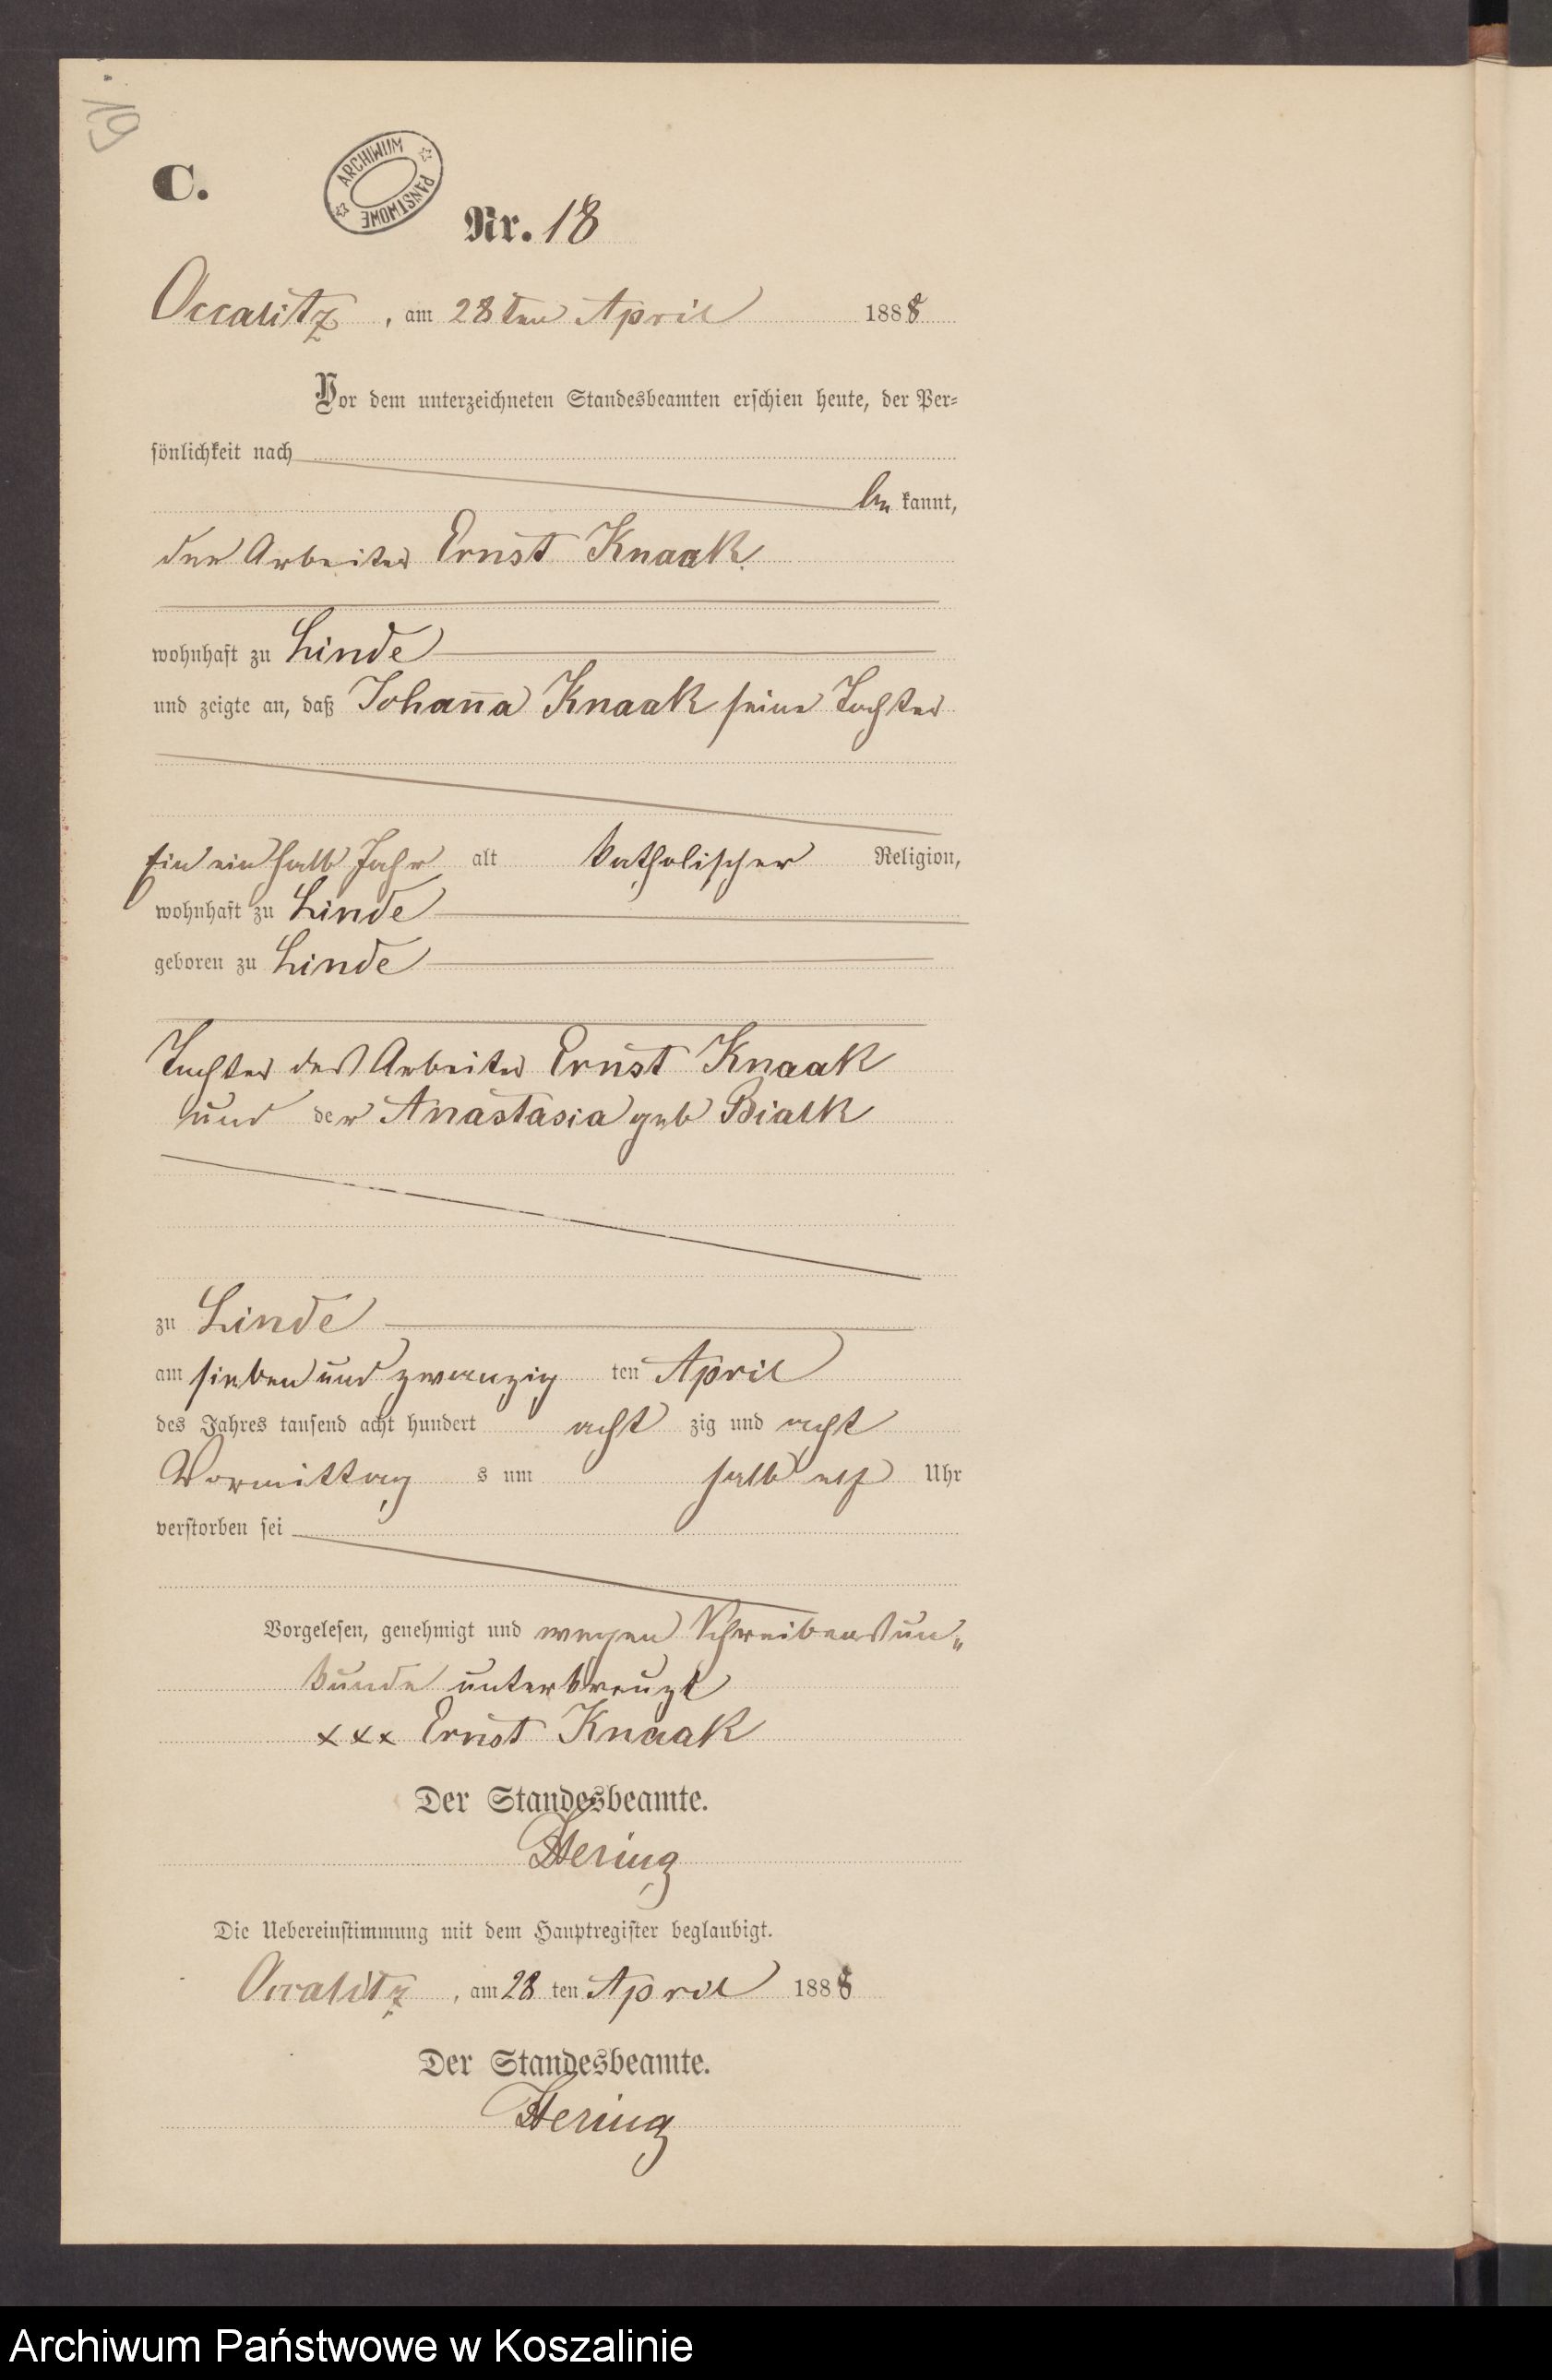 19
C.
ARCHIWUM PAŃSTWOWE
Nr. 18
Occalitz, am 28ten April 1888
Vor dem unterzeichneten Standesbeamten erschien heute, der Per-
sönlichkeit nach
be kannt,
der Arbeiter Ernst Knaak
wohnhaft zu Linde
und zeigte an, daß Johanna Knaak seine Tochter
Ein ein halb Jahr alt katholischer Religion,
wohnhaft zu Linde
geboren zu Linde
Tochter des Arbeiter Ernst Knaak
und der Anastasia geb Bialk
zu Linde
am sieben und zwanzig ten April
des Jahres tausend acht hundert acht zig und acht
Vormittag s um halb elf Uhr
verstorben sei
Vorgelesen, genehmigt und wegen Schreibensun„
kunde unterkreuzt
xxx Ernst Knaak
Der Standesbeamte.
Hering
Die Uebereinstimmung mit dem Hauptregister beglaubigt.
Occalitz, am 28 ten April 1888
Der Standesbeamte.
Hering
Archiwum Państwowe w Koszalinie